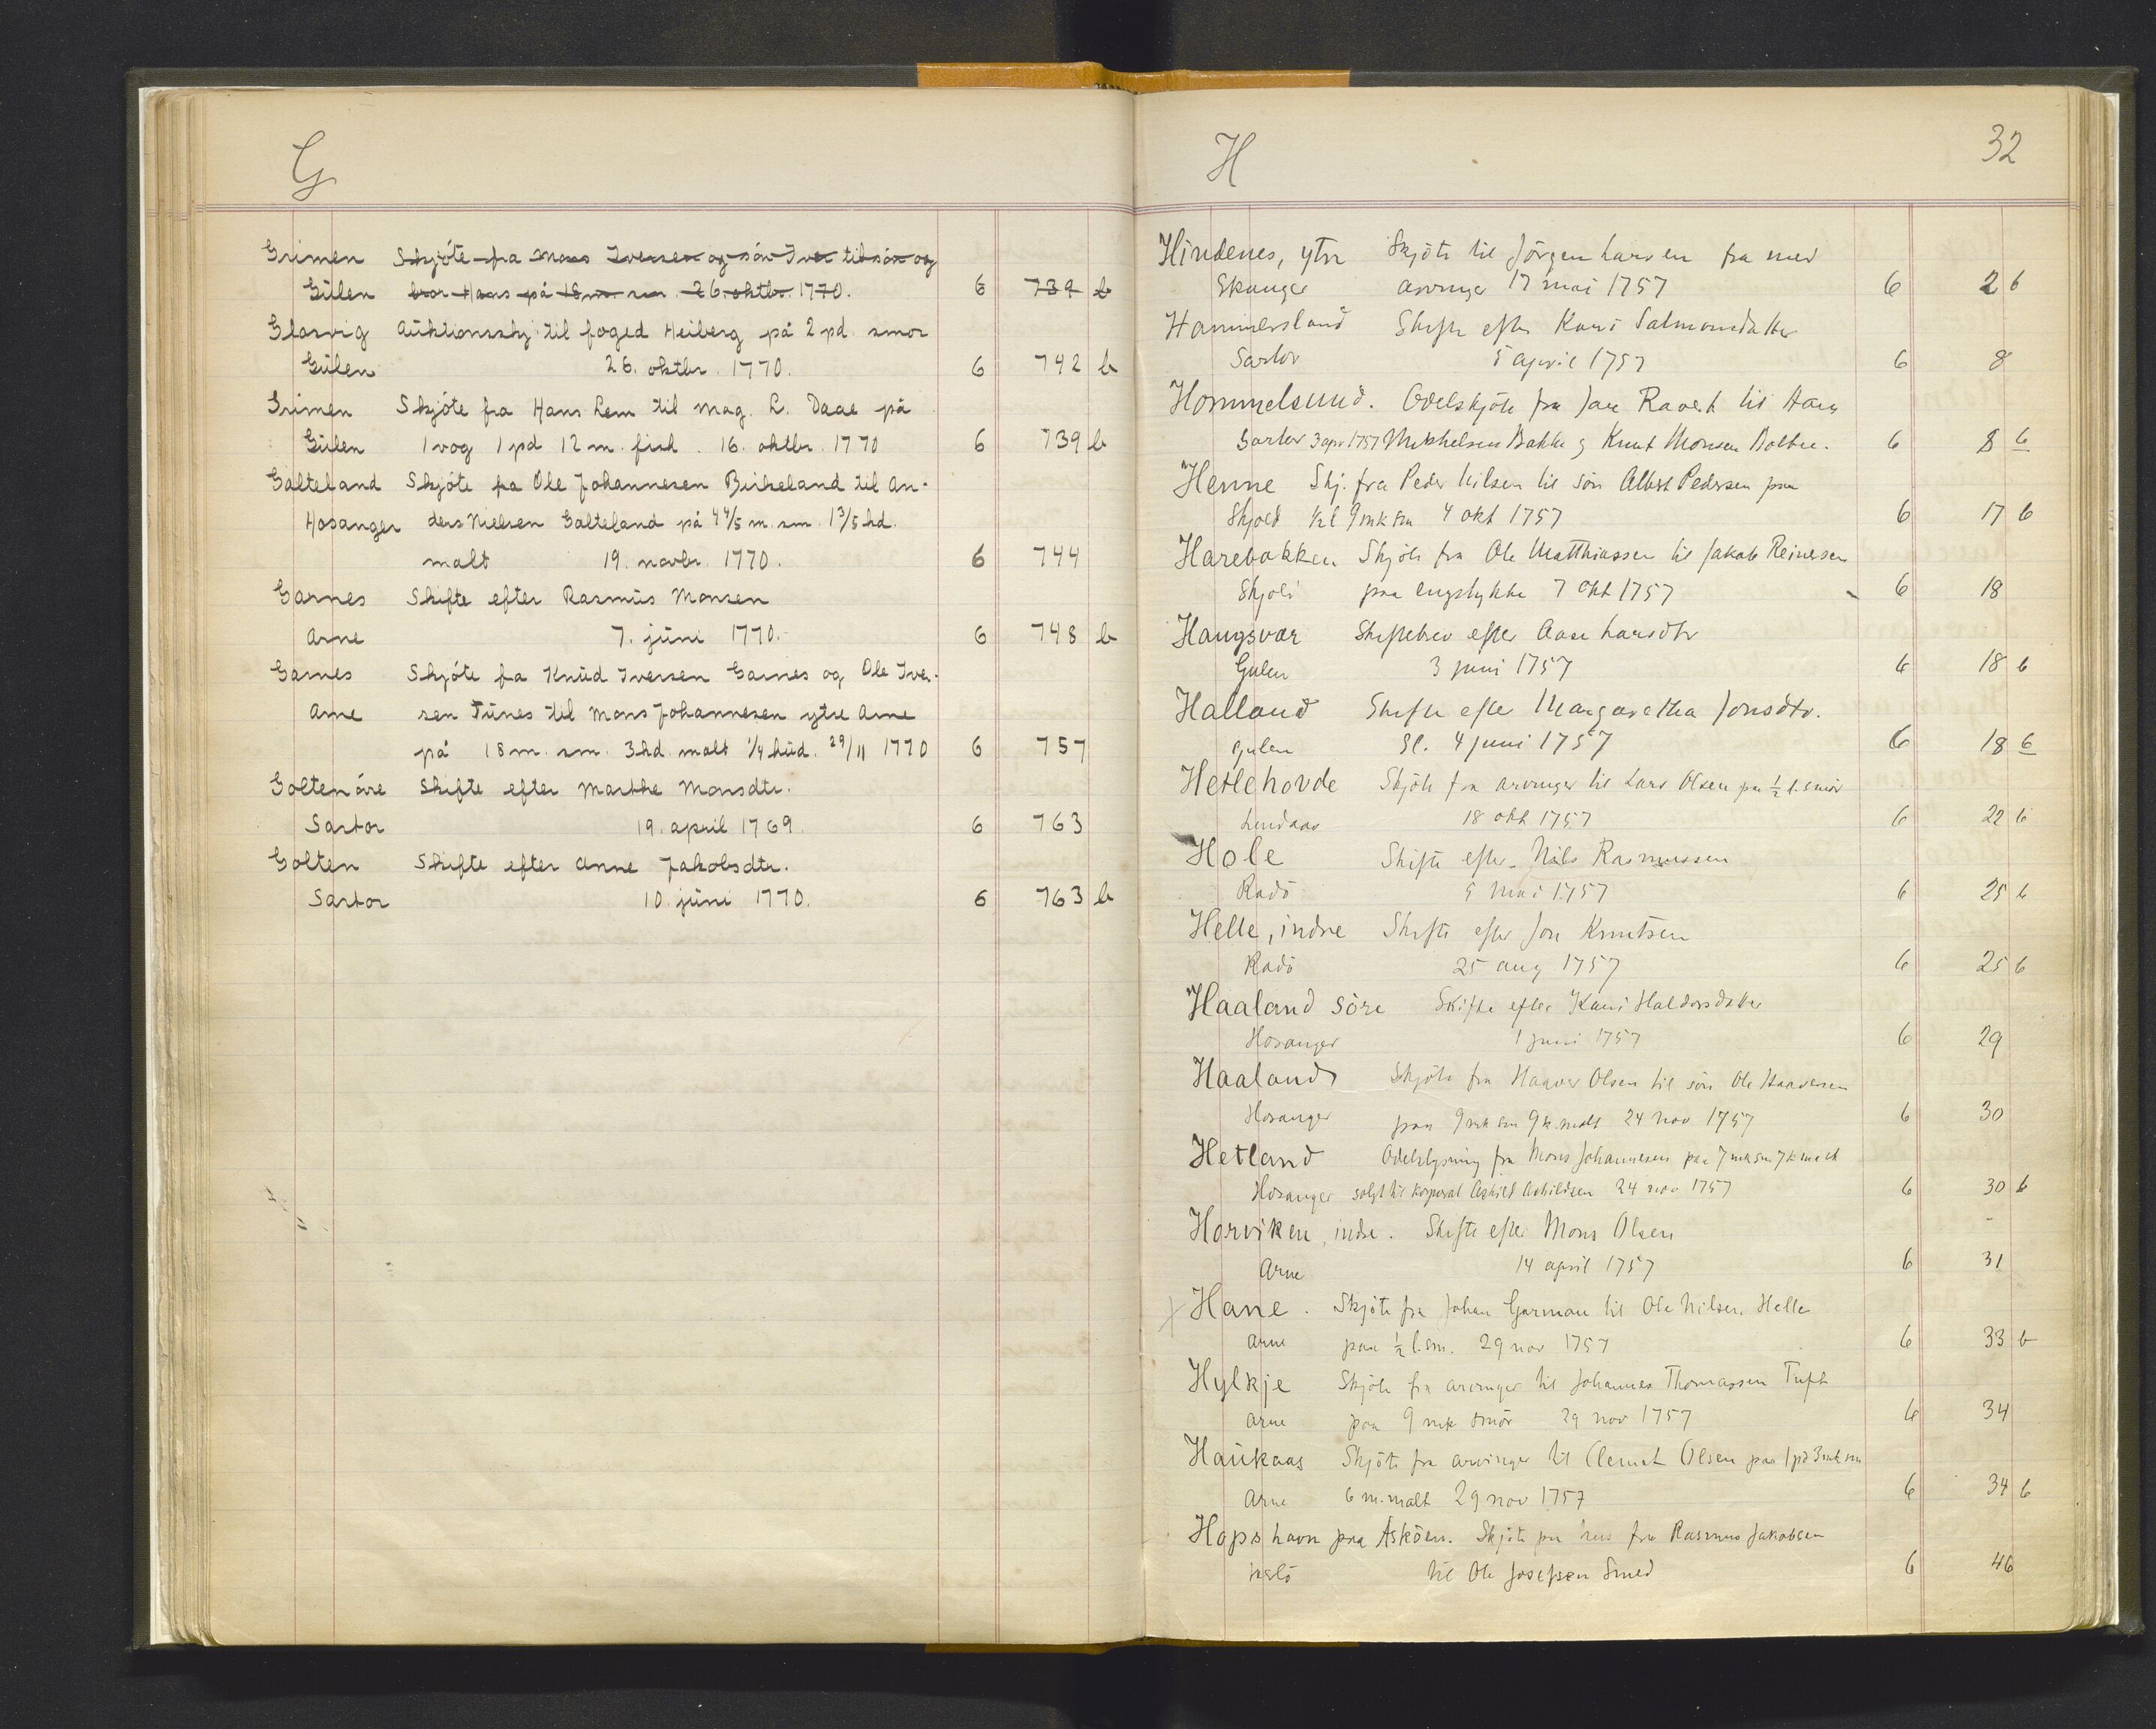 G
Grimen Skjöte fra Mons Iversen og sön Iver til sön og
Gülen bror Hans på 18 m. sm. 26. oktbr. 1770. 6 739 b
Glosvig Auktionsskj. til foged Heiberg på 2 pd. smör
Gülen 26. oktbr. 1770. 6 742 b
Grimen Skjöte fra Hans Lem til mag. L. Daae på
Gülen 1 vog 1 pd 12 m. fisk. 16. oktbr. 1770 6 739 b
Galteland Skjöte fra Ole Johannesen Birkeland til An-
Hosanger ders Nielsen Galteland på 4 4/5 m. sm. 1 3/5 hd.
malt 19. novbr. 1770. 6 744
Garnes Skifte efter Rasmüs Monsen
Arne 7. jüni 1770. 6 748 b
Garnes Skjöte fra Knüd Iversen Garnes og Ole Iver-
Arne sen Tünes til Mons Johannesen ytre Arne
på 18 m. sm. 3 hd. malt 1/4 hüd. 29/11 1770 6 757
Goltenöre Skifte efter Marthe Monsdtr.
Sartor 19. april 1769. 6 763
Golten Skifte efter Anne Jakobsdtr.
Sartor 10. jüni 1770. 6 763 b
H 32
Hindenes, ytre Skjöte til Jörgen Larsen fra med
Skanger arvinger 17 mai 1757 6 2 b
Hammersland Skifte efter Kari Salmonsdatter
Sartor 5 april 1757 6 8
Hommelsund. Odelskjöte fra Jan Ravert til Hans
Sartor 3 apr 1757 Mikkelsen Bakke og Knut Monsen 6 8 b
Henne Skj. fra Peder Nilsen til sön Albert Pedersen paa
Skjold 1/2 l 9 mk sm 4 okt 1757 6 17 b
Harebakken Skjöte fra Ole Matthiassen til Jakob Reinesen
Skjold paa engstykke 7 okt 1757 6 18
Haugsvær Skiftebrev efter Aase Larsdtr
Gulen 3 juni 1757 6 18 b
Halland Skifte efter Margaretha Jonsdtr.
Gulen 4 juni 1757 6 18 b
Hetlehovde Skjöte fra arvinger til Lars Olsen paa 1/2 l. smör
Lindaas 18 okt 1757 6 22 b
Hole Skifte efter Nils Rasmussen
Radö 5 mai 1757 6 25 b
Helle, indre Skifte efter Jon Knutsen
Radö 25 aug 1757 6 25 b
Haaland söre Skifte efter Kari Haldorsdatter
Hosanger 1 juni 1757 6 29
Haaland Skjöte fra Haaver Olsen til sön Ole Haaversen
Hosanger paa 9 mk sm 9 k. malt 24 nov 1757 6 30
Hetland Odelslysning fra Mons Johannesen paa 7 mk sm 7 k malt
Hosanger solgt til korporal Askild Askildsen 24 nov 1757 6 30 b
Horviken, indre. Skifte efter Mons Olsen
Arne 14 april 1757 6 31
Hane. Skjöte fra Johan Garman til Ole Nilsen Helle
Arne paa 1/2 l. sm. 29 nov 1757 6 33 b
Hylkje Skjöte fra arvinger til Johannes Thomassen Tuft
Arne paa 9 mk smör 29 nov 1757 6 34
Haukaas Skjöte fra arvinger til Clemet Olsen paa 1 pd 3 mk sm
Arne 6 m. malt 29 nov 1757 6 34 b
Hops havn paa Asköen. Skjöte paa hus fra Rasmus Jakobsen
til Ole Josefsen Smed 6 46